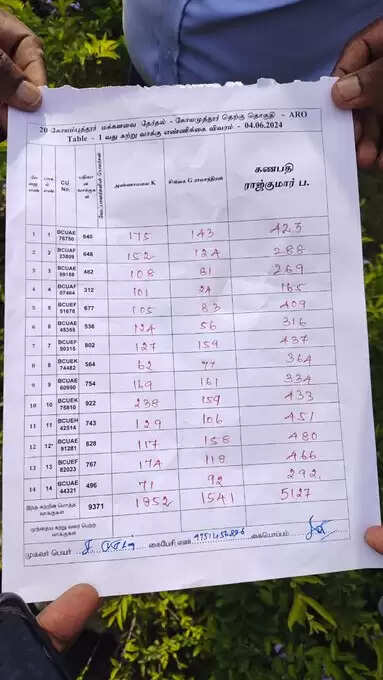 20 கோயம்புத்தூர் மக்களவை தேர்தல் - கோயமுத்தூர் தெற்கு தொகுதி - ARO
Table - 1 வது சுற்று வாக்கு எண்ணிக்கை விவரம் - 04.06.2024
CU No. அண்ணாமலை K சிங்கை G ராமச்சந்திரன் கணபதி ராஜ்குமார் ப.
1 1 BCUAE 76750 540 175 143 423
2 2 BCUAF 23809 648 152 124 288
3 3 BCUAE 482 108 81 269
4 4 BCUAF 07464 312 101 24 165
5 5 BCUEF 51678 677 105 83 409
6 6 BCUAE 536 124 56 316
7 7 BCUEF 50315 802 127 159 437
8 8 BCUEK 74482 564 62 77 364
9 9 BCUAE 60990 754 169 161 334
10 10 BCUEK 75810 922 238 159 433
11 11 BCUEH 42514 743 129 106 451
12 12* BCUAE 91281 828 117 158 480
13 13 BCUEF 82023 767 174 118 466
14 14 BCUAE 44321 496 71 92 292
இந்த சுற்றின் மொத்த வாக்குகள் 9371 1852 1541 5127
முந்தைய சுற்று வரை பெற்ற வாக்குகள்
முகவர் பெயர் கைபேசி எண். கையொப்பம்